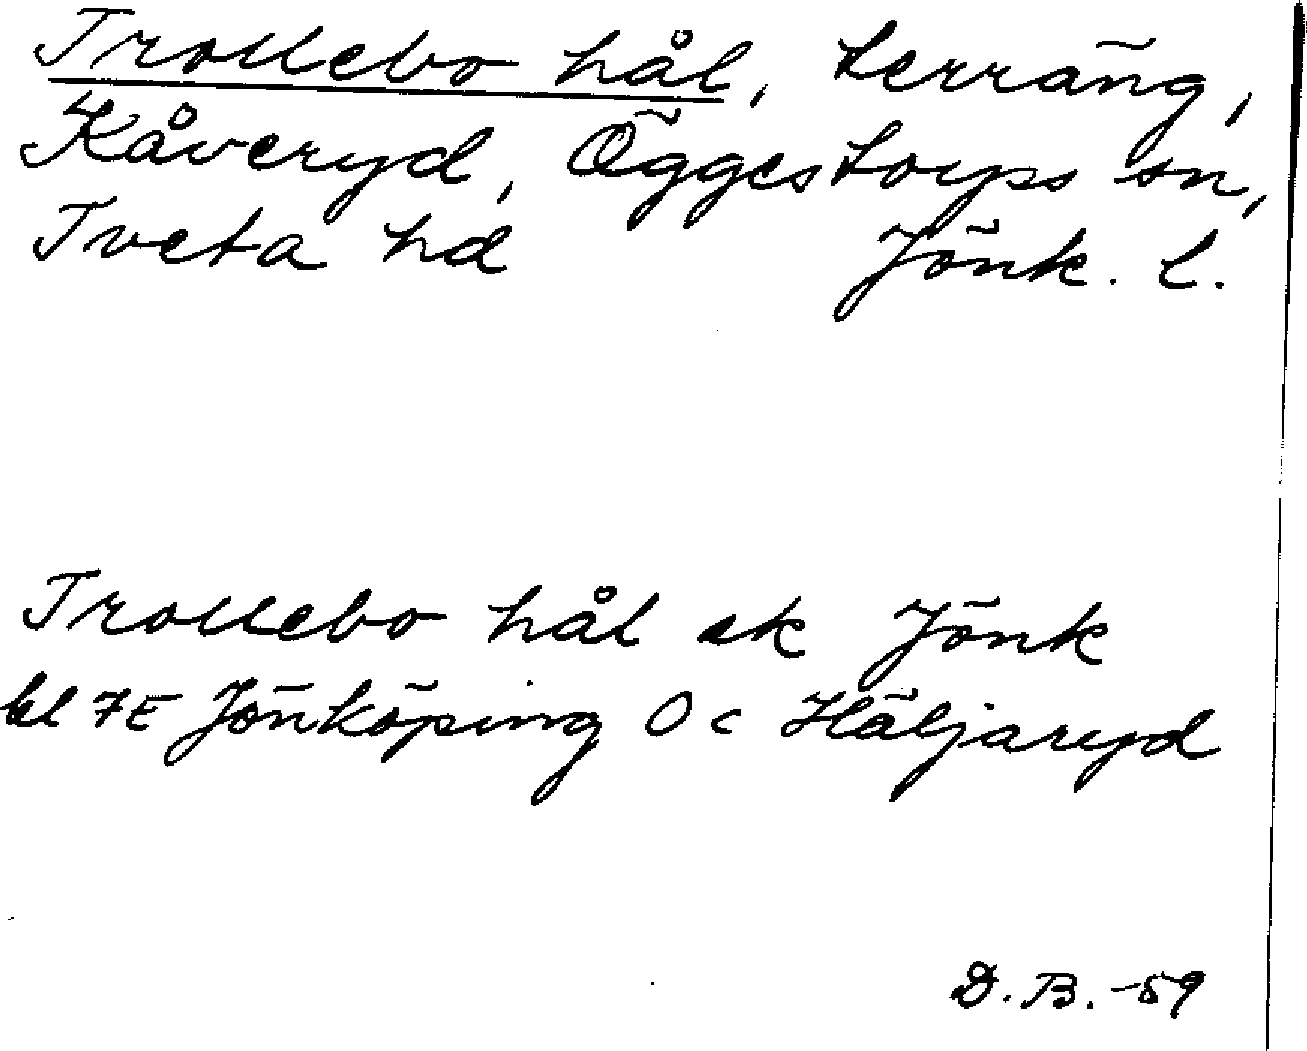 Trollebo hål, terräng,
Kåveryd, Öggestorps sn,
Tveta hd Jönk. l.
Trollebo hål ek Jönk
bl 7E Jönköping 0 c Häljaryd
D. B. -59